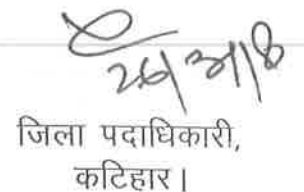 26/3/18
जिला पदाधिकारी,
कटिहार।